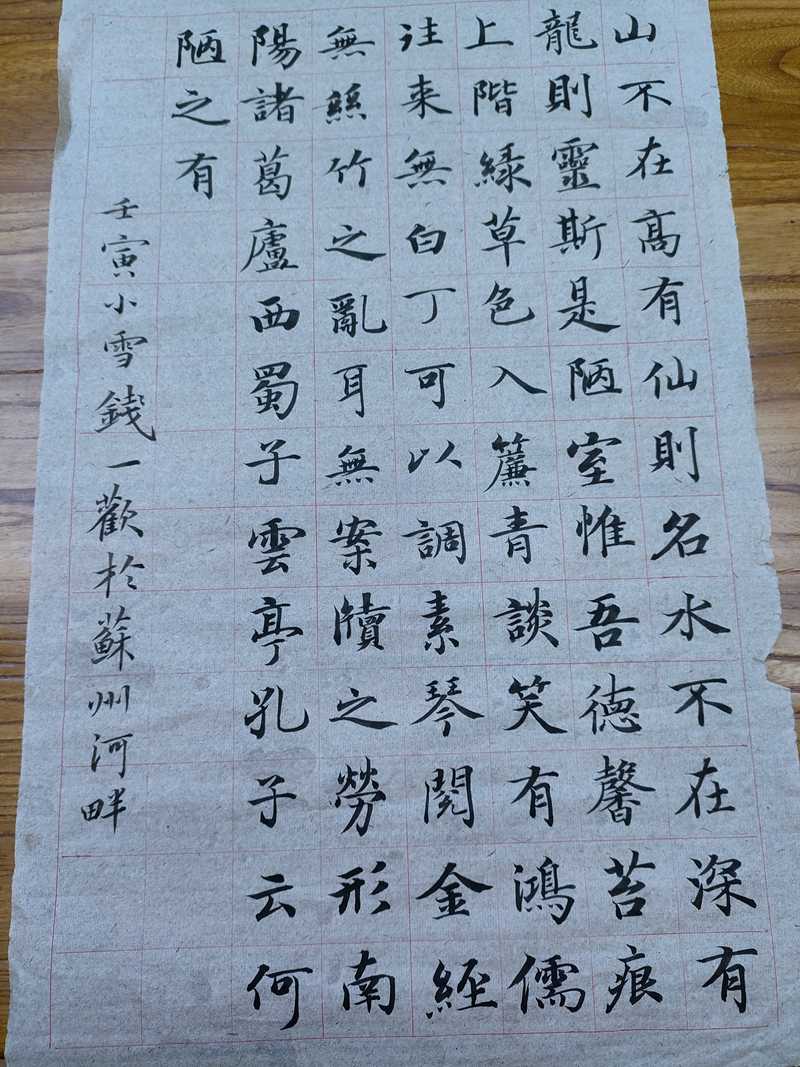 山不在髙有仙則名水不在深有
龍則靈斯是陋室惟吾德馨苔痕
上階綠草色入簾青談笑有鴻儒
往来無白丁可以調素琴閱金經
無絲竹之亂耳無案牘之勞形南
陽諸葛廬西蜀子雲亭孔子云何
陋之有
壬寅小雪錢一歡於蘇州河畔